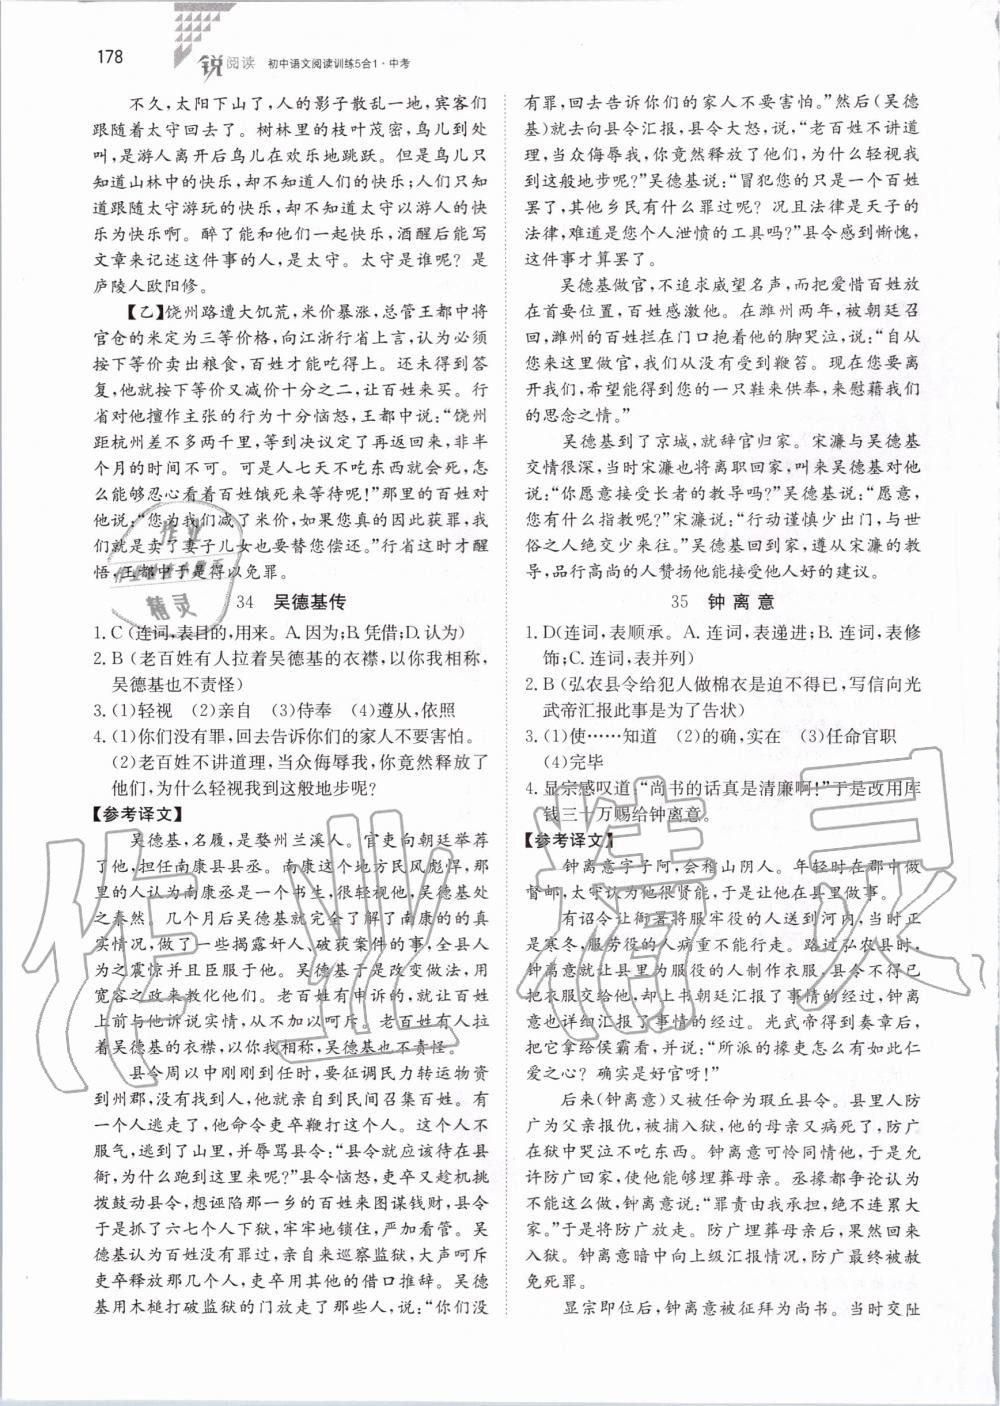 178
锐阅读 初中语文阅读训练5合1·中考
不久,太阳下山了,人的影子散乱一地,宾客们
跟随着太守回去了。树林里的枝叶茂密,鸟儿到处
叫,是游人离开后鸟儿在欢乐地跳跃。但是鸟儿只
知道山林中的快乐,却不知道人们的快乐;人们只知
道跟随太守游玩的快乐,却不知道太守以游人的快
乐为快乐啊。醉了能和他们一起快乐,酒醒后能写
文章来记述这件事的人,是太守。太守是谁呢?是
庐陵人欧阳修。
【乙】饶州路遭大饥荒,米价暴涨,总管王都中将
官仓的米定为三等价格,向江浙行省上言,认为必须
按下等价格卖出粮食,百姓才能吃得上。还未得到答
复,他就按下等价又减价十分之二,让百姓来买。行
省对他擅作主张的行为十分恼怒,王都中说:“饶州
距杭州差不多两千里,等到决议定了再返回来,非半
个月的时间不可。可是人七天不吃东西就会死,怎
么能够忍心看着百姓饿死来等待呢!”那里的百姓对
他说:“您为我们减了米价,如果您真的因此获罪,我
们就是卖了妻子儿女也要替您偿还。”行省这时才醒
悟,王都中于是得以免罪。
34 吴德基传
1. C(连词,表目的,用来。A.因为;B.凭借;D.认为)
2. B(老百姓有人拉着吴德基的衣襟,以你我相称,
吴德基也不责怪)
3. (1)轻视 (2)亲自 (3)侍奉 (4)遵从,依照
4. (1)你们没有罪,回去告诉你们的家人不要害怕。
(2)老百姓不讲道理,当众侮辱我,你竟然释放了
他们,为什么轻视我到这般地步呢?
【参考译文】
吴德基,名履,是婺州兰溪人。官吏向朝廷举荐
了他,担任南康县县丞。南康这个地方民风彪悍,那
里的人认为南康丞是一个书生,很轻视他。吴德基处
之泰然。几个月后吴德基完全了解了南康的的真
实情况,做了一些揭露奸人、破获案件的事,全县人
为之震惊并且臣服于他。吴德基于是改变做法,用
宽容之政来教化他们。老百姓有申诉的,就让百姓
上前与他诉说实情,从不加以呵斥。老百姓有人拉
着吴德基的衣襟,以你我相称,吴德基也不责怪。
县令周以中刚刚到任时,要征调民力转运物资
到州郡,没有征集到,他到民间召集百姓。有
一个人逃走了,他命令吏卒鞭打这个人。这个人不
服气,逃到了山里,并辱骂县令:“县令就应该待在县
衙,为什么跑到这里来呢?”县令恼怒,吏卒又趁机挑
拨鼓动县令,想诬陷那一乡的百姓来图谋钱财,县令
于是抓了六七个人下狱,牢牢地锁住,严加看管。吴
德基认为百姓没有罪过,亲自来巡察监狱,大声呵斥
吏卒释放那几人,吏卒用其他的借口推辞。吴德
基用木槌打破监狱的门放走了那些人,说:“你们没
有罪,回去告诉你们的家人不要害怕。”然后(吴德
基)就去向县令汇报,县令大怒,说,“老百姓不讲道
理,当众侮辱我,你竟然释放了他们,为什么轻视我
到这般地步呢?”吴德基说:“冒犯您的只是一个百姓
罢了,其他乡民有什么罪过呢?况且法律是天子的
法律,难道是您个人泄愤的工具吗?”县令感到惭愧,
这件事才算罢了。
吴德基做官,不追求威望名声,而把爱惜百姓放
在首要位置,百姓感激他。在潍州两年,被朝廷召
回,潍州的百姓拦在门口抱着他的脚哭泣,说:“自从
您来这里做官,我们从没有受到鞭笞。现在您要离
开我们,希望能得到您的一只鞋来供奉,来慰藉我们
的思念之情。”
吴德基到了京城,就辞官归家。宋濂与吴德基
交情很深,当时宋濂也将离职回家,叫来吴德基对他
说:“你愿意接受长者的教导吗?”吴德基说:“愿意,
您有什么指教呢?”宋濂说:“行动谨慎少出门,与世
俗之人绝交少来往。”吴德基回到家,遵从宋濂的教
导,品行高尚的人赞扬他能接受他人好的建议。
35 钟离意
1. D(连词,表顺承。A.连词,表递进;B.连词,表修
饰;C.连词,表并列)
2. B(弘农县令给犯人做棉衣是迫不得已,写信向光
武帝汇报此事是为了告状)
3. (1)使……知道 (2)的确,实在 (3)任命官职
(4)完毕
4. 显宗感叹道:“尚书的话真是清廉啊!”于是改用库
钱三十万赐给钟离意。
【参考译文】
钟离意字子阿,会稽山阴人。年轻时在郡中做
督邮,太守认为他很贤能,于是让他在县里做事。
有诏令让衙署将服牢役的人送到河内,当时正
是寒冬,服劳役的人病重不能行走。路过弘农县时,
钟离意就让县里为服役的人制作衣服,县令不得已
把衣服交给他,却上书朝廷汇报了事情的经过,钟离
意也详细汇报了事情的经过。光武帝得到奏章后,
把它拿给侯霸看,并说:“所派的掾吏怎么有如此仁
爱之心?确实是好官呀!”
后来(钟离意)又被任命为瑕丘县令。县里人防
广为父亲报仇,被捕入狱,他的母亲又病死了,防广
在狱中哭泣不吃东西。钟离意可怜同情他,于是允
许防广回家,使他能够埋葬母亲。丞掾都争论认为
不能这么做,钟离意说:“罪责由我承担,绝不连累大
家。”于是将防广放走。防广埋葬母亲后,果然回来
入狱。钟离意暗中向上级汇报情况,防广最终被赦
免死罪。
显宗即位后,钟离意被征拜为尚书。当时交趾
作业精灵